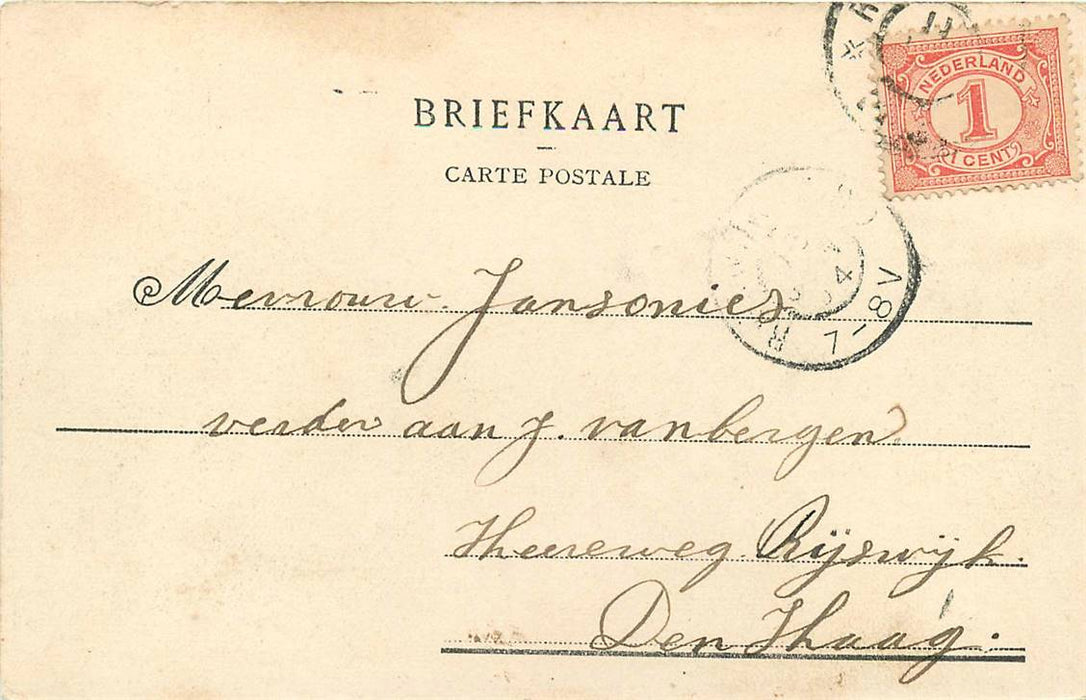 BRIEFKAART
CARTE POSTALE
NEDERLAND
1
1 CENT
7-8V
Mevrouw Jansonies
verder aan J. van bergen
Heereweg Rijswijk.
Den Haag.